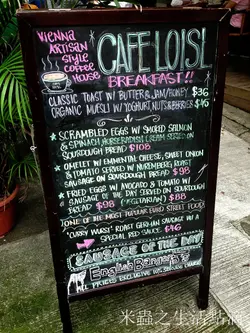 VIENNA
ARTISAN
STYLE
COFFEE
HOUSE
CAFE LOISL
BREAKFAST!!
CLASSIC TOAST W/ BUTTER & JAM/HONEY $36
ORGANIC MUESLI W/ YOGHURT, NUTS & BERRIES $46
SCRAMBLED EGGS W/ SMOKED SALMON
& SPINACH, HORSERADISH CREAM SERVED ON
SOURDOUGH BREAD $108
OMELET W/ EMMENTAL CHEESE, SWEET ONION
& TOMATO SERVED W/ NUREMBERG ROAST
SAUSAGE ON SOURDOUGH BREAD $98
FRIED EGGS W/ AVOCADO & TOMATO W/
SAUSAGE OF THE DAY SERVED ON SOURDOUGH
BREAD $98 (VEGETARIAN) $88
ONE OF THE MOST POPULAR EURO STREET FOODS
"CURRY WURST" ROAST GERMAN SAUSAGE W/ A
SPECIAL RED SAUCE $46
SAUSAGE OF THE DAY
English Banger's
ALL PRICES INCLUSIVE
米蟲之生活點滴